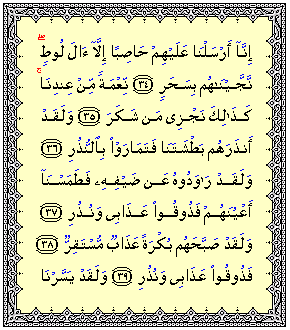 إِنَّآ أَرْسَلْنَا عَلَيْهِمْ حَاصِبًا إِلَّآ ءَالَ لُوطٍۖ
نَّجَّيْنَٰهُم بِسَحَرٍ ۝٣٤ نِّعْمَةً مِّنْ عِندِنَاۚ
كَذَٰلِكَ نَجْزِى مَن شَكَرَ ۝٣٥ وَلَقَدْ
أَنذَرَهُم بَطْشَتَنَا فَتَمَارَوْا۟ بِٱلنُّذُرِ ۝٣٦
وَلَقَدْ رَٰوَدُوهُ عَن ضَيْفِهِۦ فَطَمَسْنَآ
أَعْيُنَهُمْ فَذُوقُوا۟ عَذَابِى وَنُذُرِ ۝٣٧
وَلَقَدْ صَبَّحَهُم بُكْرَةً عَذَابٌ مُّسْتَقِرٌّ ۝٣٨
فَذُوقُوا۟ عَذَابِى وَنُذُرِ ۝٣٩ وَلَقَدْ يَسَّرْنَا